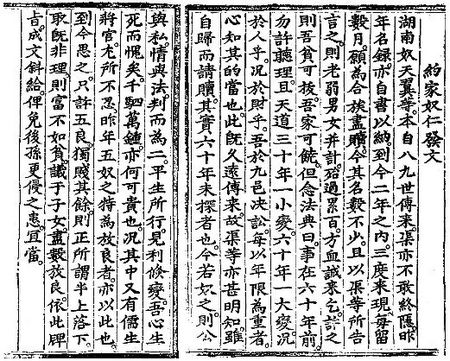 約家奴仁發文
湖南奴天翼等本自八九世傳來渠亦不敢終隱昨
年名錄亦自書以納到今二年之內三度來現每留
數月願為合族盡贖今其名數不少且以渠等所告
言之則老弱男女幷計殆過累百方血誠來乞許之
則吾貧可拔吾家可饒但念法典曰事在六十年前
勿許聽理且天道三十年一小變六十年一大變況
於人乎況於財乎吾於九邑決訟每以年限為重者
心知其的當也此旣久遠傳來故渠等亦甚明知雖
自歸而請贖其實六十年未推者也今若奴之則公
與私情與法判而為二平生所行見利倏變吾心生
死而愧矣千駟萬鍾亦何可貴也況其中又有儒生
將官尤所不忍昨年五奴之特為放良者亦以此也
到今思之只許五良獨賤其餘則正所謂半上落下
取旣非理則當不如貧議于子女盡數放良依此牌
旨成文斜給俾免後孫更侵之患宜當